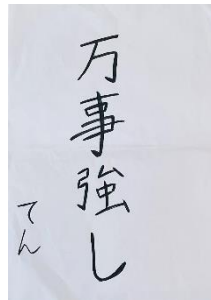 万事強し
てん